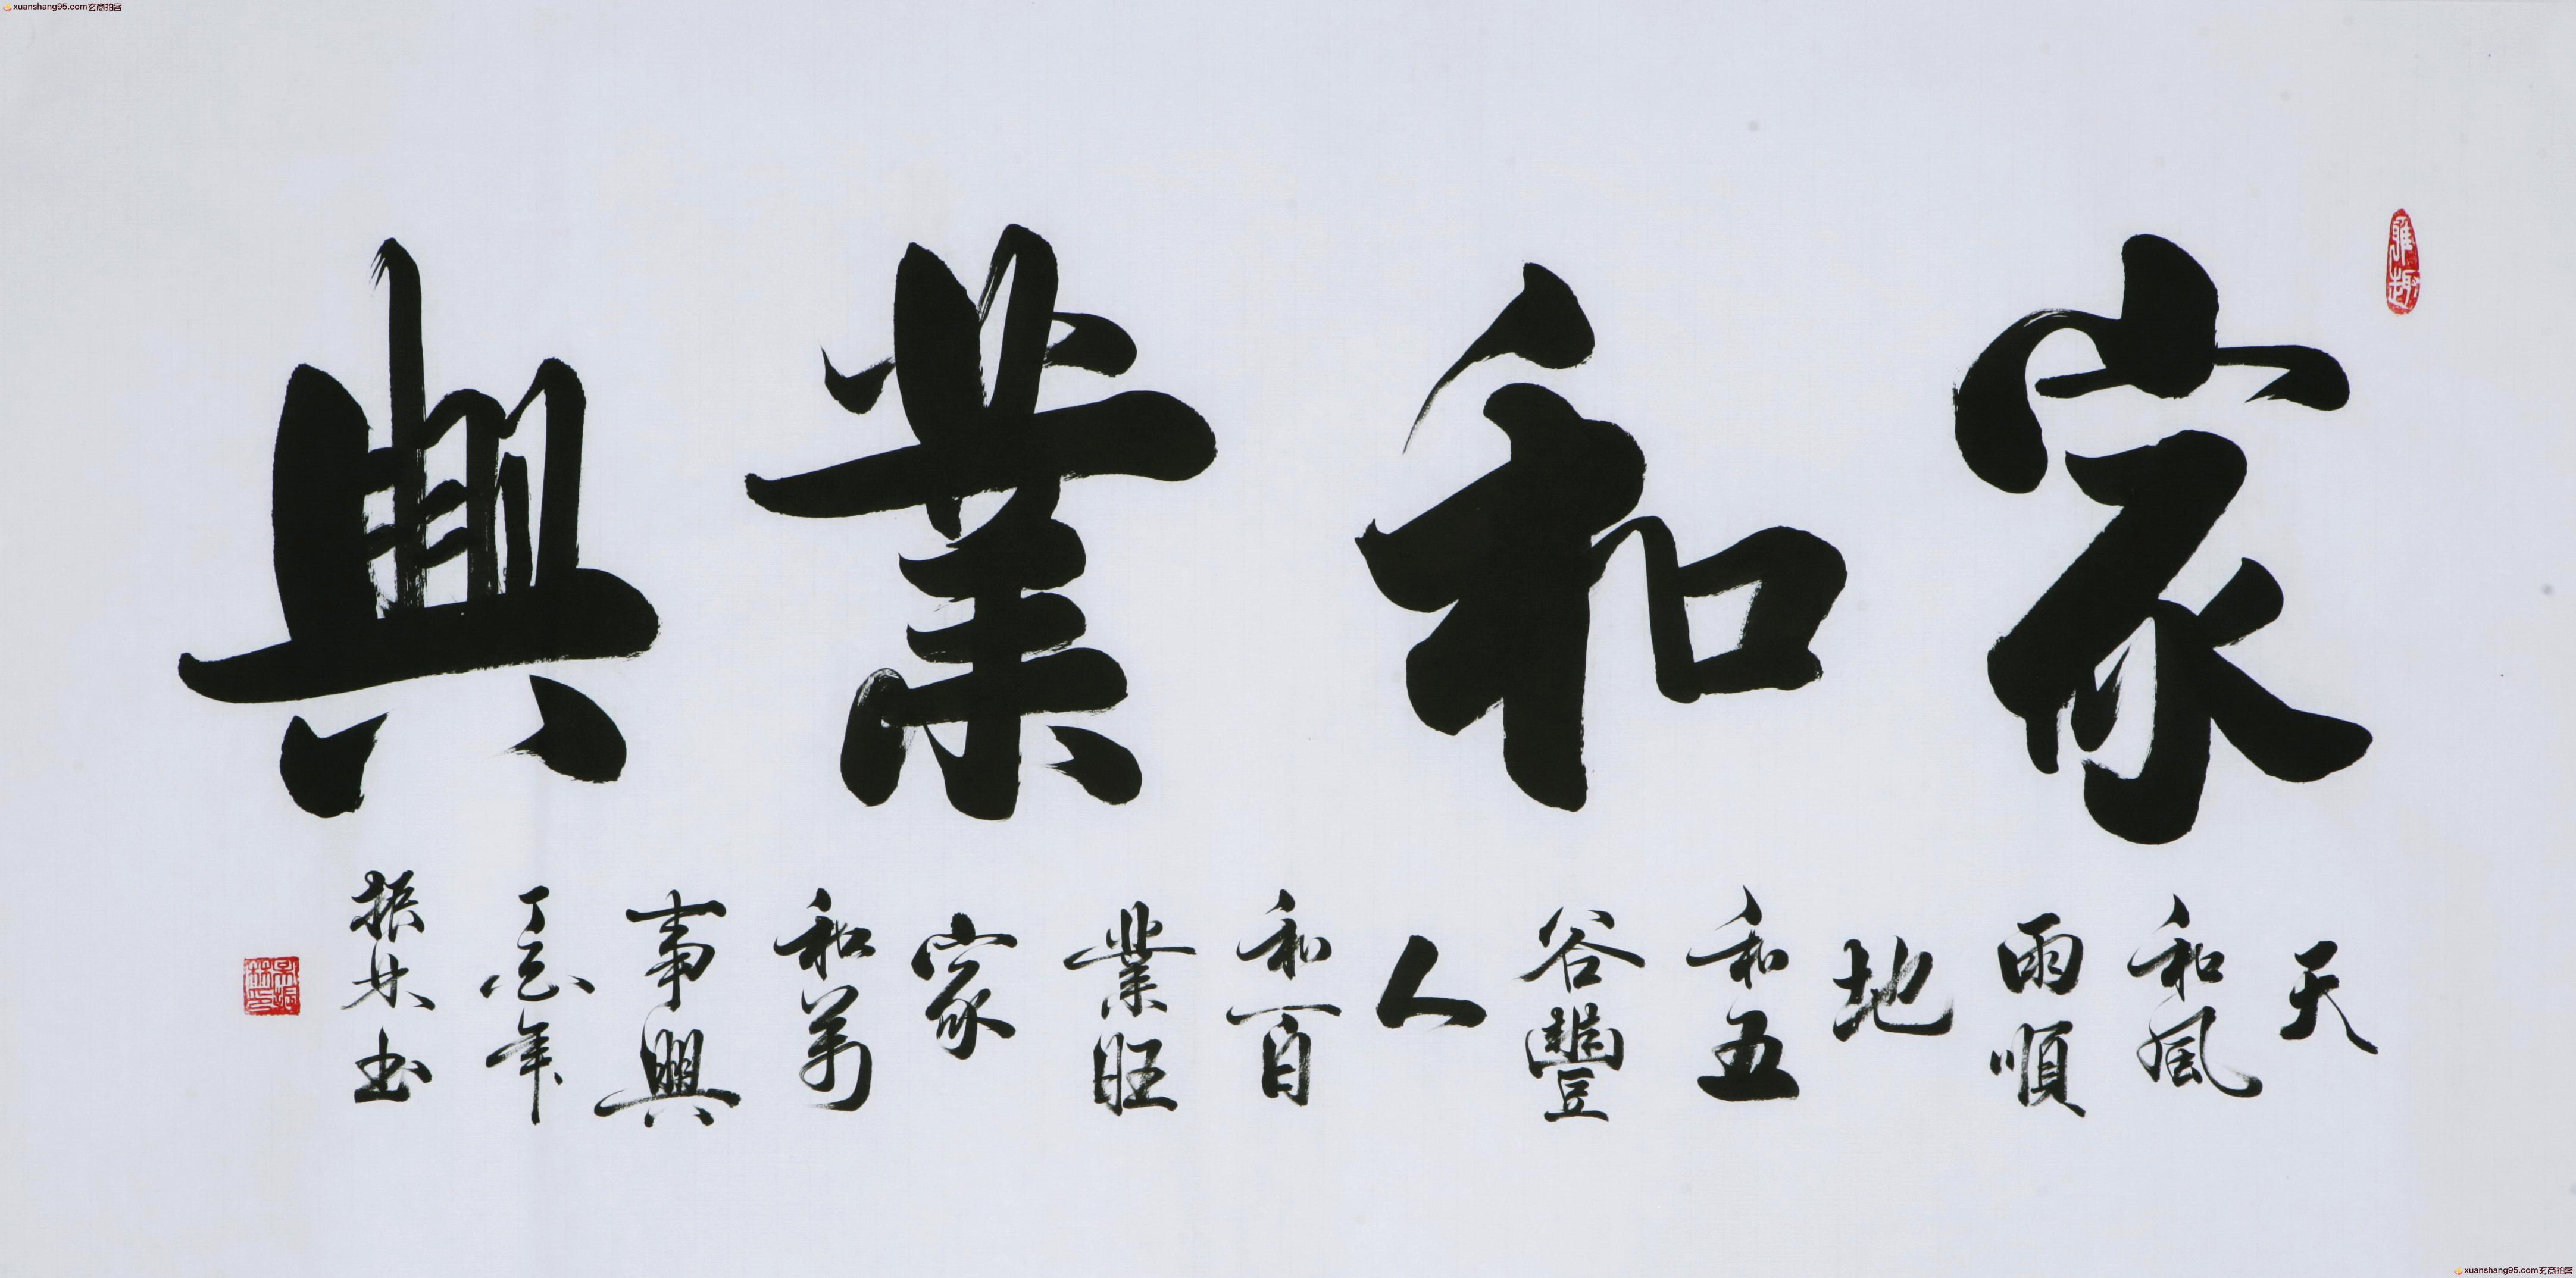 xuanshang95.com玄商拍客
雅趣
家和業興
天
和風
雨順
地
和五
谷豐
人
和百
業旺
家
和萬
事興
丁年
振林書
xuanshang95.com玄商拍客